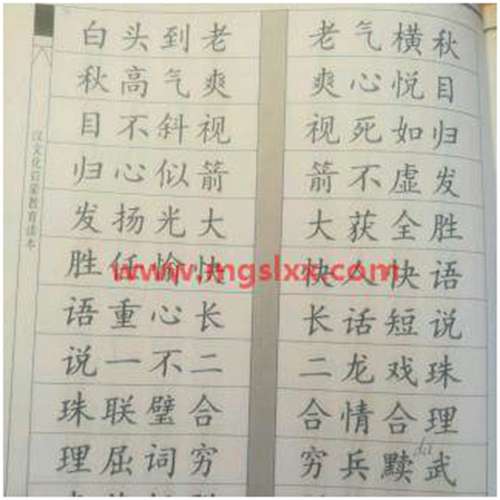 白头到老 老气横秋
秋高气爽 爽心悦目
目不斜视 视死如归
归心似箭 箭不虚发
发扬光大 大获全胜
胜任愉快 快人快语
语重心长 长话短说
说一不二 二龙戏珠
珠联璧合 合情合理
理屈词穷 穷兵黩武
汉文化启蒙教育读本
www.mgslxx.com